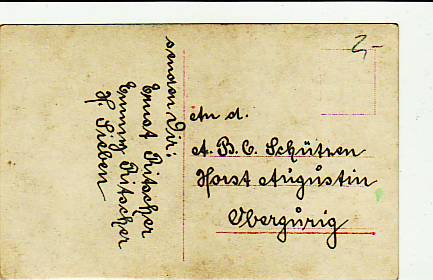 senden Dir:
Ernst Ritscher
Emmy Ritscher
H. Sieben
2,-
An d.
A. B. C. Schützen
Horst Augustin
Obergurig